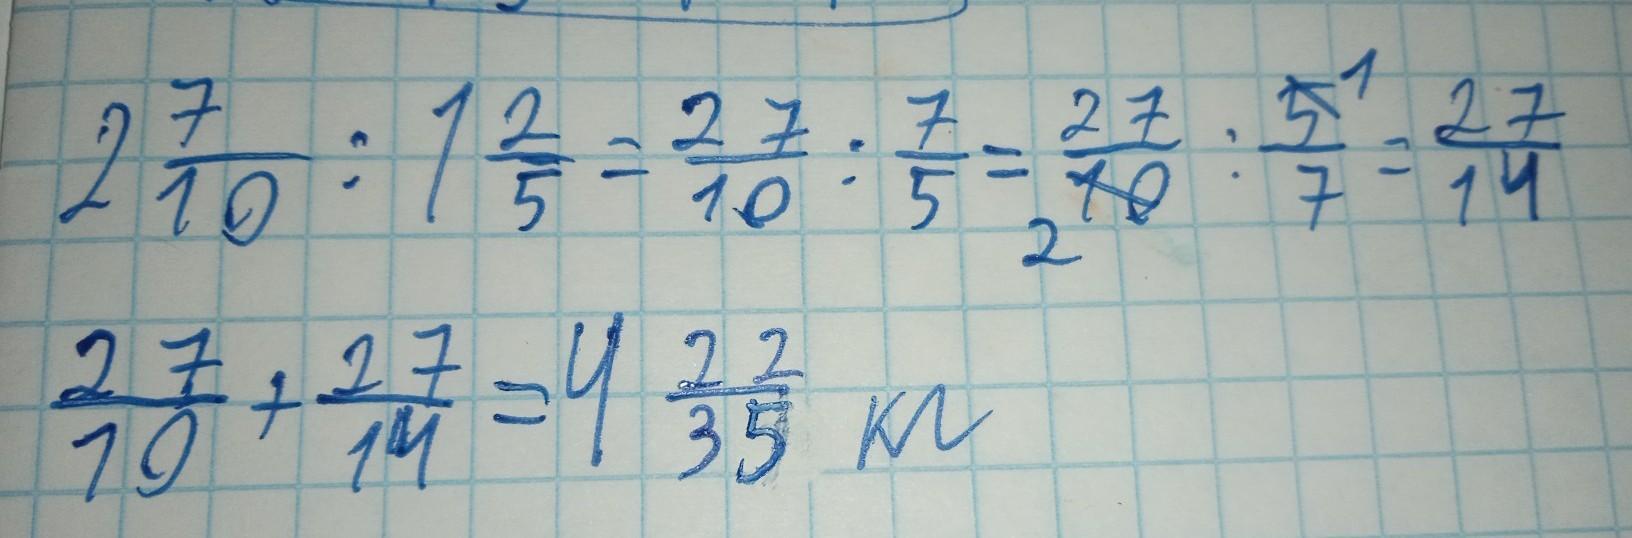 2 7/10 : 1 2/5 = 27/10 : 7/5 = 27/10 2 : 5/7 1 = 27/14
27/10 + 27/14 = 4 22/35 кг